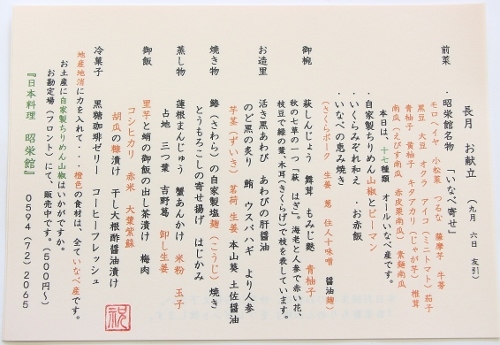 長月　お献立　（九月　六日　友引）
前菜　・昭栄館名物　「いなべ寄せ」
モロヘイヤ　小松菜　つるな　薩摩芋　牛蒡
黒豆　大豆　オクラ　アイコ（ミニトマト）茄子
青柚子　黄柚子　キタアカリ（じゃが芋）　椎茸
南瓜（えびす南瓜　赤皮栗南瓜）　素麺南瓜
本日は、十七種類　オールいなべ産です。
自家製ちりめん山椒とピーマン
・いくらみぞれ和え　・お赤飯
・いなべの恵み焼き
（さくらポーク　生姜　葱　住人十味噌　醤油麹）
御椀　萩しんじょう　舞茸　もみじ麩　青柚子
秋の七草の一つ「萩　はぎ」。海老と人参で赤い花、
枝豆で緑の葉・木耳（きくらげ）で枝を表しています。
お造里　活き黒あわび　あわびの肝醤油
のど黒の炙り　鮪　ウスバハギ　より人参
芋茎（ずいき）　茗荷　生姜　本山葵　土佐醤油
焼き物　鰆（さわら）の自家製塩麹（こうじ）焼き
とうもろこしの寄せ揚げ　はじかみ
蒸し物　蓮根まんじゅう　蟹あんかけ　米粉　玉子
占地　三つ葉　吉野葛　卸し生姜
御飯　里芋と蛸の御飯の出し茶漬け　梅肉
コシヒカリ　赤米　大葉紫蘇
胡瓜の糠漬け　干し大根酢醤油漬け
冷菓子　黒糖珈琲ゼリー　コーヒーフレッシュ
地産地消に力を入れて・・・橙色の食材は、全ていなべ産です。
お土産に自家製ちりめん山椒はいかがですか。
お勘定場（フロント）にて、販売中です。（５００円〜）
『日本料理　昭栄館』　０５９４（７２）２０６５
祝